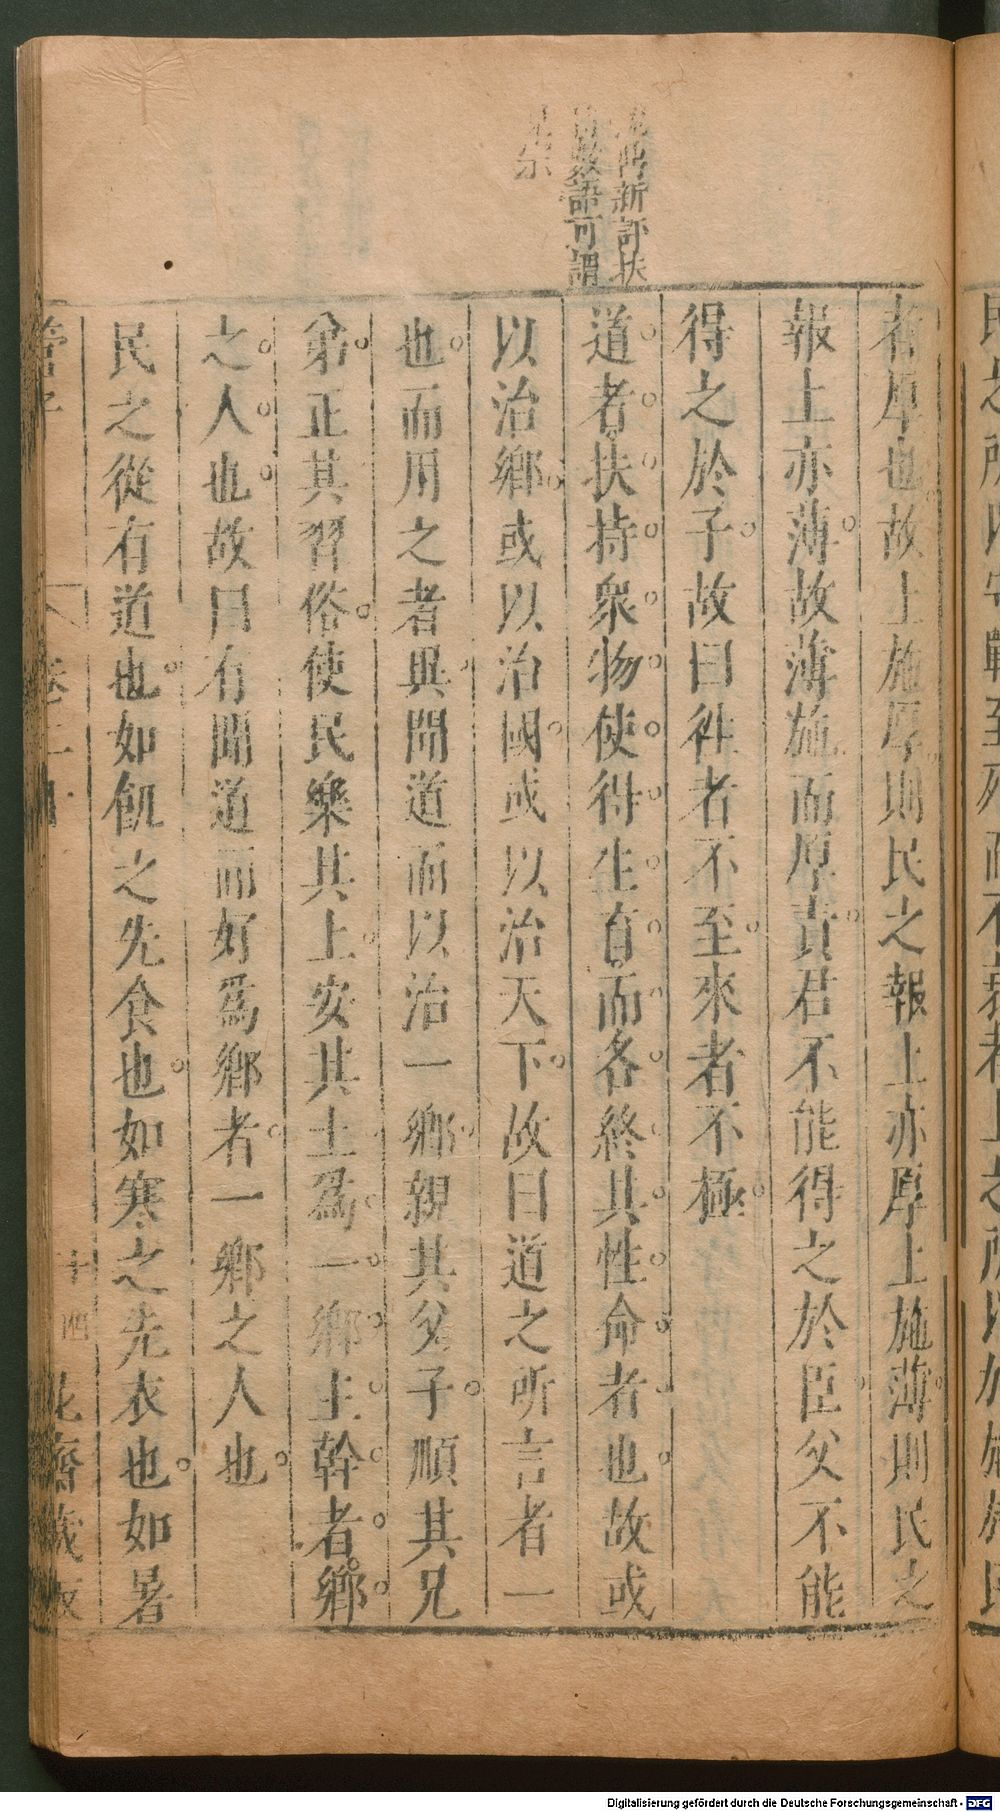 新評扶
數語可謂
宗
者厚也故上施厚則民之報上亦厚上施薄則民之
報上亦薄故薄施而厚責君不能得之於臣父不能
得之於子故曰徃者不至來者不極
道者扶持衆物使得生育而各終其性命者也故或
以治鄉或以治國或以治天下故曰道之所言者一
也而用之者異聞道而以治一鄉親其父子順其兄
弟正其習俗使民樂其上安其土爲一鄉主幹者鄉
之人也故曰有聞道而好爲鄉者一鄉之人也
民之從有道也如飢之先食也如寒之先衣也如暑
管子
卷二
十四
花齋藏板
Digitalisierung gefördert durch die Deutsche Forschungsgemeinschaft - DFG